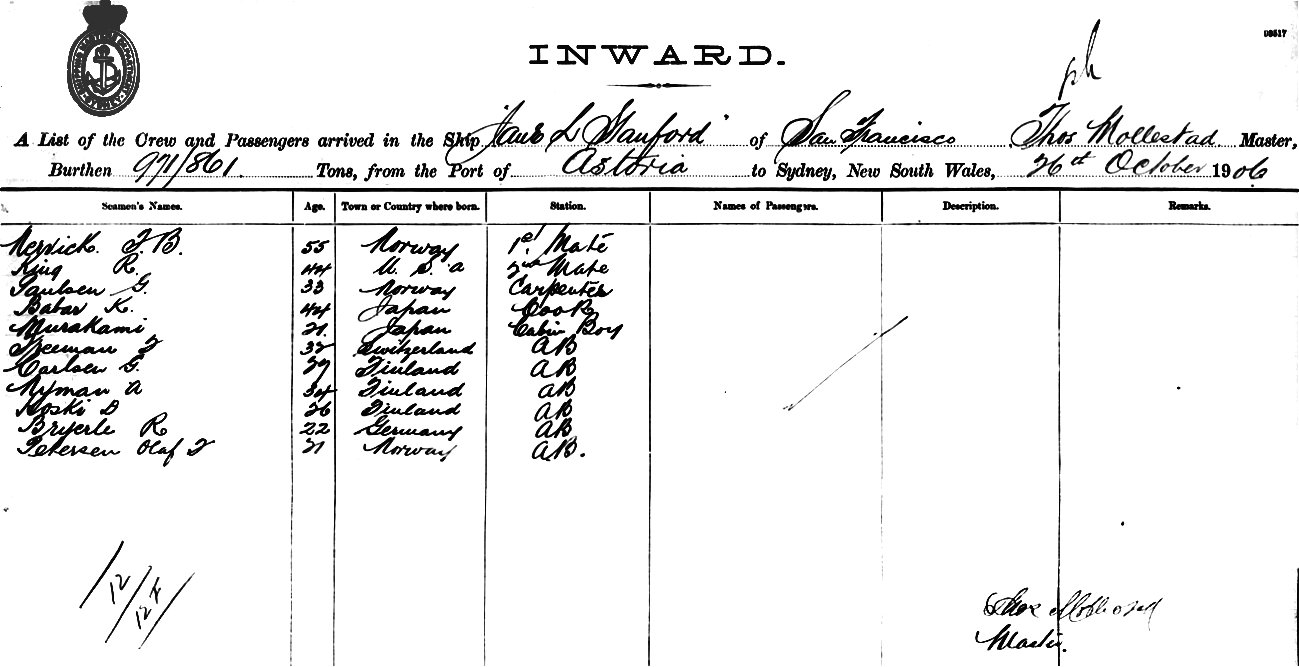 03517
INWARD.
A List of the Crew and Passengers arrived in the Ship "Jane L Stanford" of San Francisco Thos Mollestad Master,
Burthen 971/861. Tons, from the Port of Astoria to Sydney, New South Wales, 26th October 1906
Seamen's Names. Age. Town or Country where born. Station. Names of Passengers. Description. Remarks.
55 Norway 1st Mate
King R. 44 U. S. A 2nd Mate
Paulsen G. 33 Norway Carpenter
Babar K. 44 Japan Cook
Murakami 21. Japan Cabin Boy
32 Switzerland AB
Carlsen G. 27 Finland AB
Nyman A 34 Finland AB
Koski D 26 Finland AB
Bryerle R 22 Germany AB
Petersen Olaf 21 Norway AB.
12
Thos Mollestad
Master.